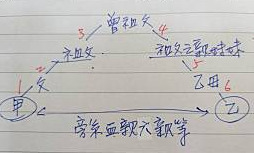 3 曾祖父 4
祖父 祖父之親姊妹
2 5
1 父 乙母 6
甲 乙
旁系血親六親等